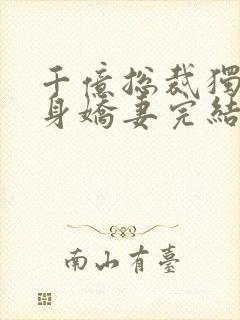 千億總裁獨
身嬌妻完結
南山有臺